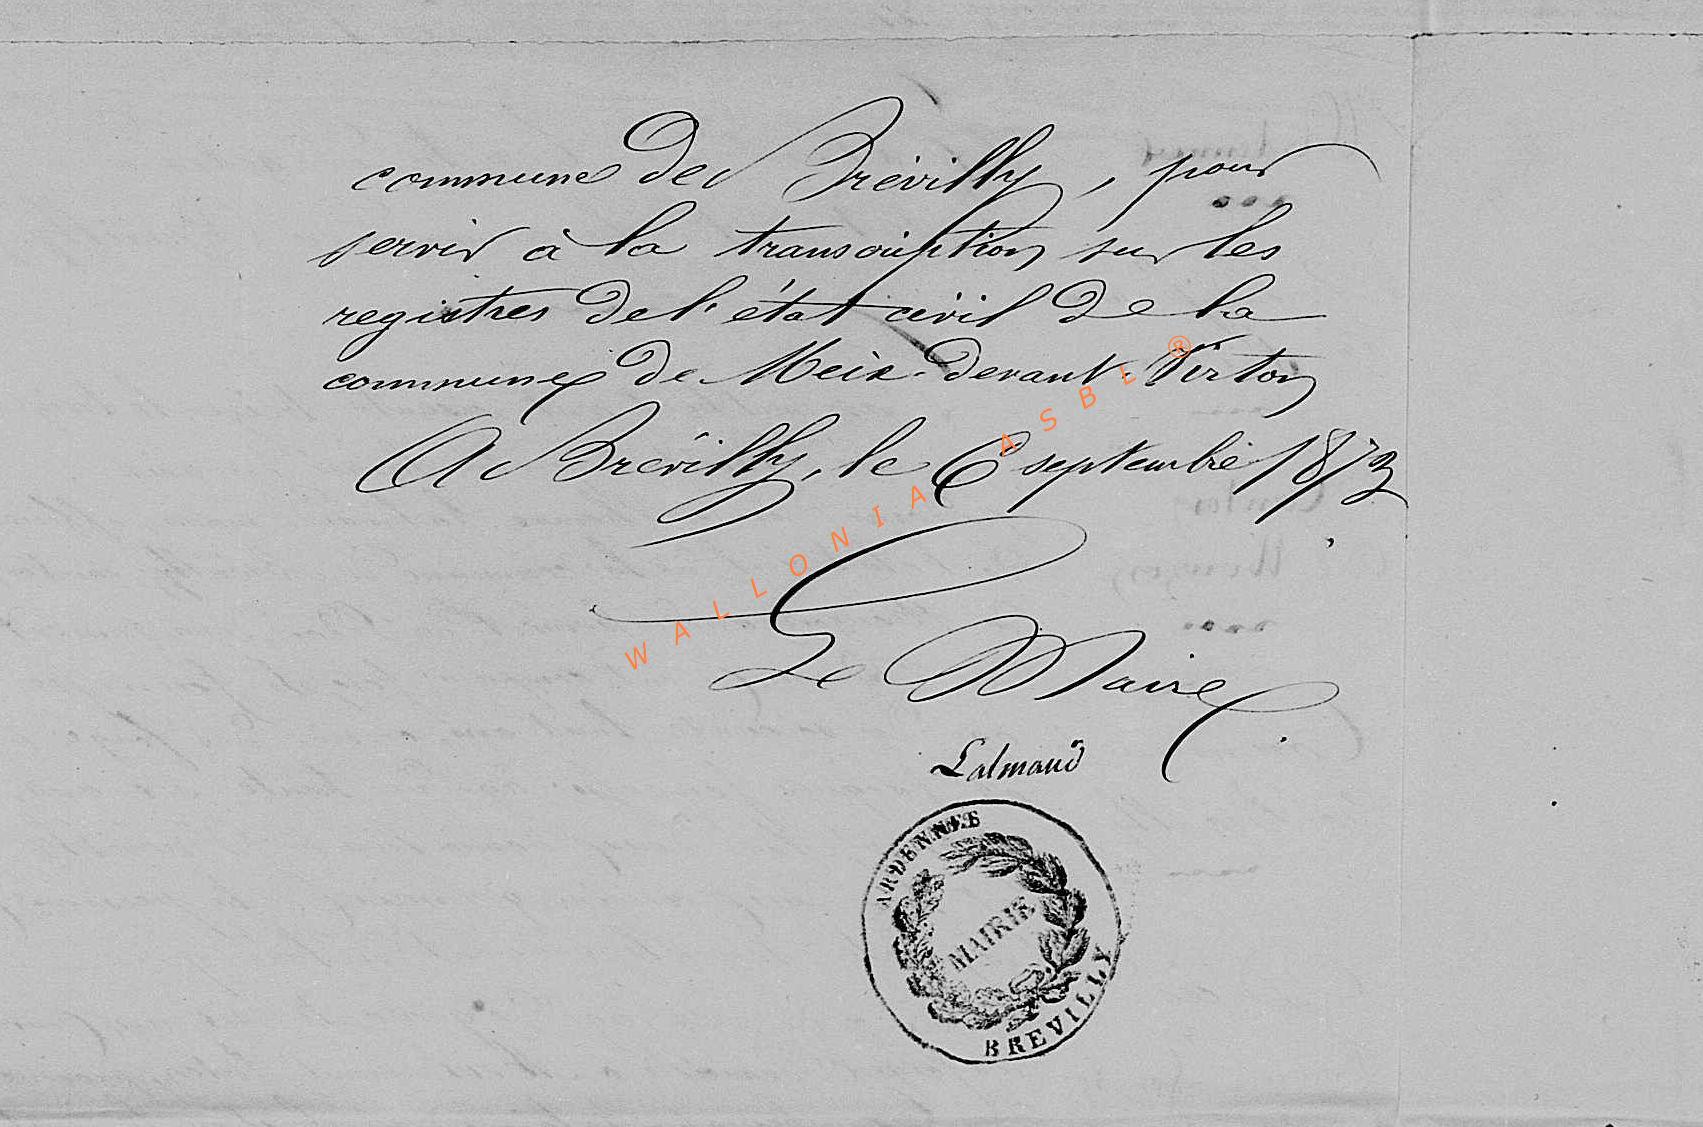 commune de Brévilly, pour
servir à la transcription sur les
registres de l'état civil de la
commune de Meix-devant-Virton
A Brévilly, le 6 septembre 1873
Le Maire
Lalmand
ARDENNES
MAIRIE
BREVILLY
WALLONIA ASBL ®